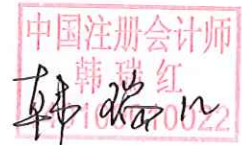 中国注册会计师
韩瑞红
韩瑞红